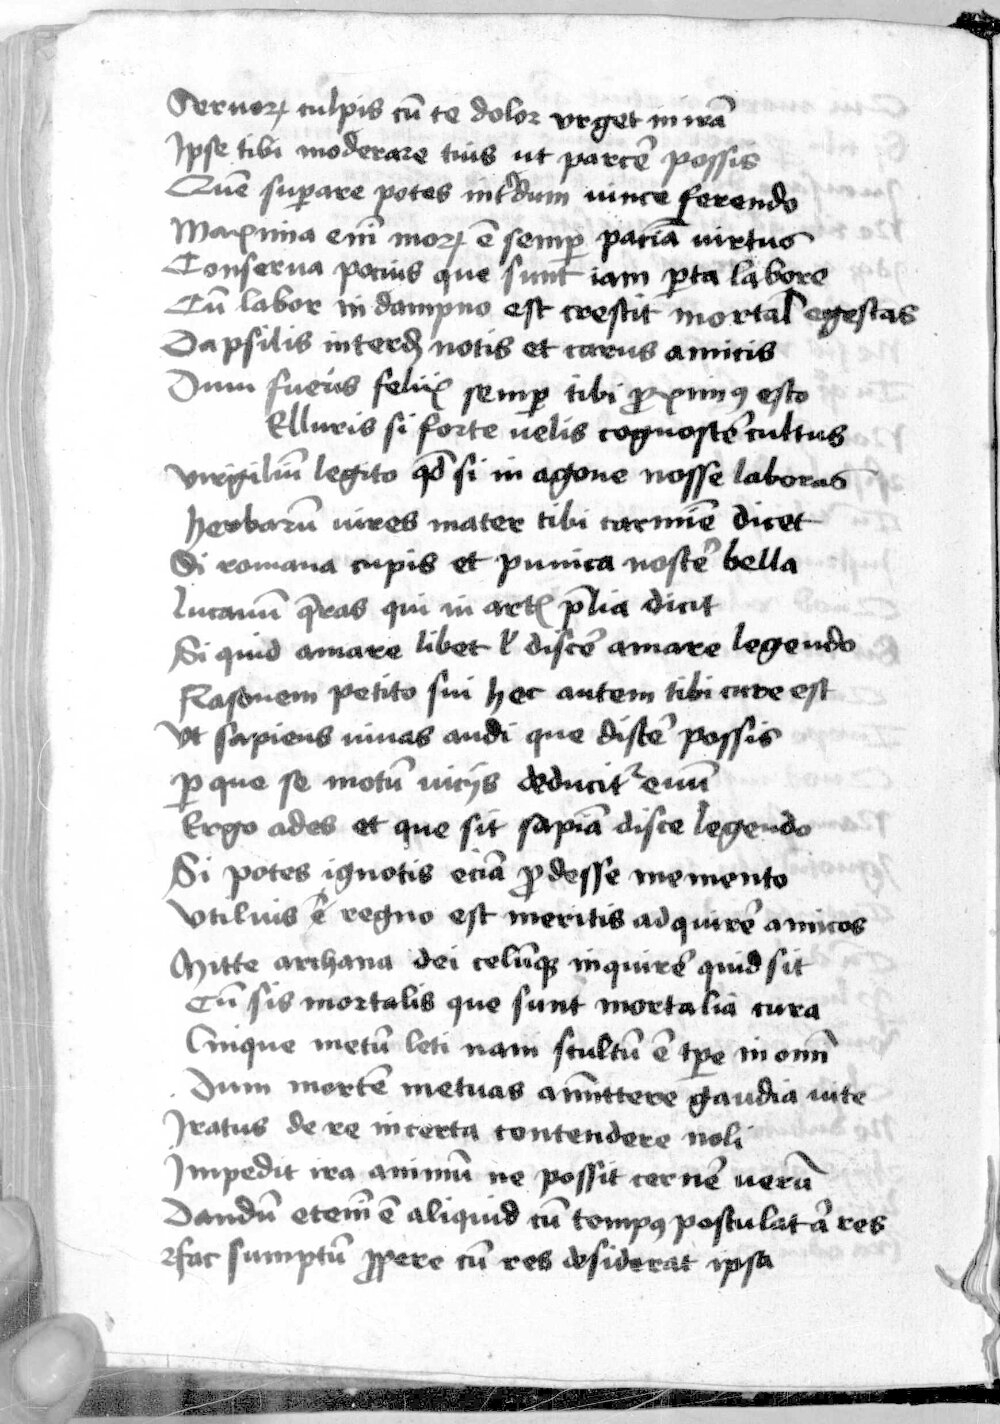 Seruorꝝ culpis cū te dolor vrget in irā
Ipse tibi moderare tuis ut parcē possis
Quē suꝑare potes int̄dum uince ferendo
Maxima eni᷄ morꝝ ē semꝑ paciā uirtus
Conserua pocius que sunt iam ꝑta labore
Cū labor in dampno est crescit mortal̛ egestas
Dapsilis interdū notis et carus amicis
Dum fueris felix semꝑ tibi ꝓximꝰ esto
Elluris si forte uelis cognoscē cultus
Virgiliū legito qd̄ si in agone nosse laboras
Herbarū uires mater tibi carmīe dicet
Si romana cupis et punica noscē bella
Lucanum q̄ras qui in art̛ p̄lia dicit
Si quid amare libet ł discē amare legendo
Nasonem petito sin hec autem tibi cure est
Vt sapiens uiuas audi que discē possis
ꝑ que se motū uiciis deducitᷣ euū
Ergo ades et que sit sapiā disce legendo
Si potes ignotis eciā ꝓdesse memento
Vtiluis ē regno est meritis adquirē amicos
Mitte archana dei celūqꝫ inquirē quid sit
Cū sis mortalis que sunt mortalia cura
Linque metū leti nam stultū ē tꝑe in omī
Dum mortē metuas amittere gaudia uite
Iratus de re incerta contendere noli
Impedit ira animū ne possit cernē uerū
Dandū etem̄ ē aliquid cū tempꝰ postulat ā res
fac sumptū ꝓpere cū res desiderat ipsa